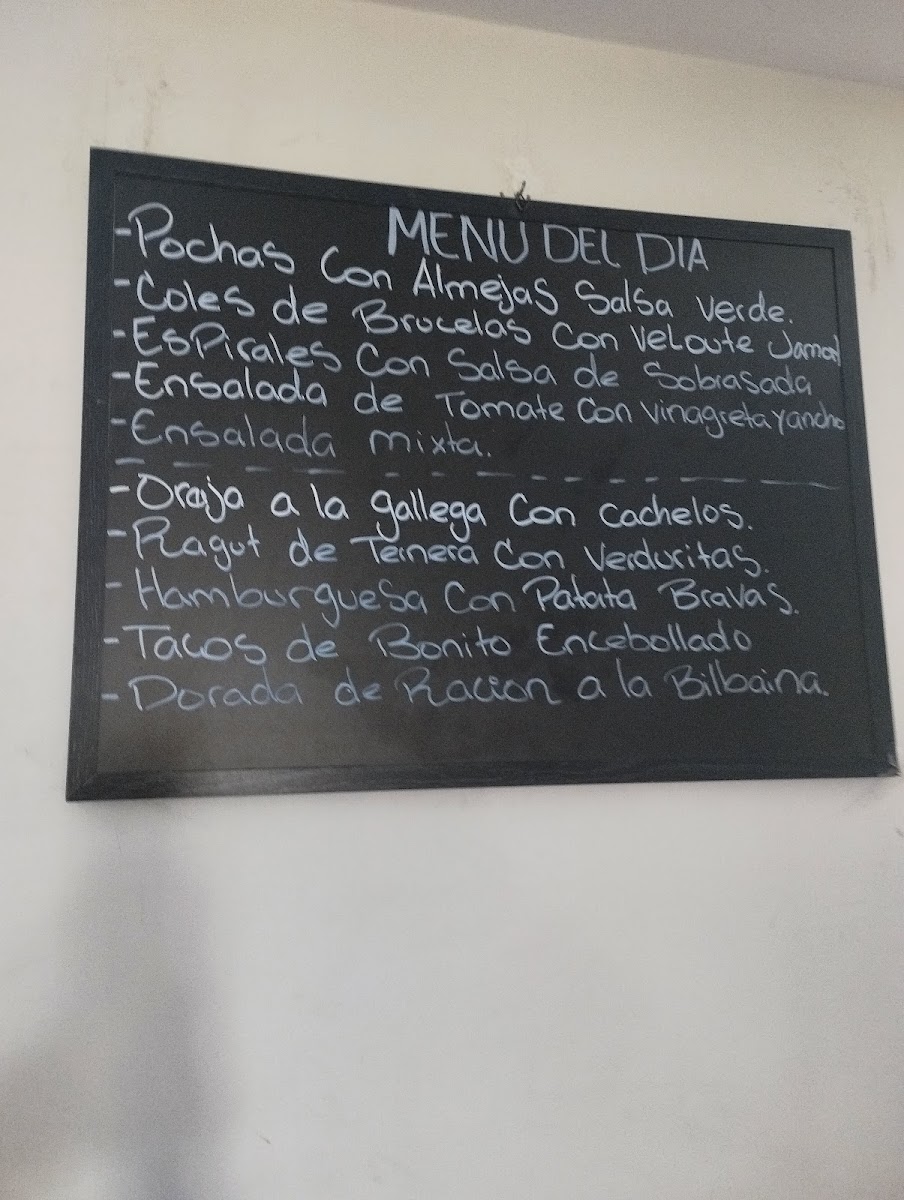 MENU DEL DIA
-Pochas Con Almejas Salsa verde.
-Coles de Brucelas Con Veloute Jamon
-EsPirales Con Salsa de Sobrasada
-Ensalada de Tomate Con vinagreta y ancho
-Ensalada mixta.
-Oreja a la gallega Con cachelos.
-Ragut de Ternera Con Verduritas.
-Hamburguesa Con Patata Bravas.
-Tacos de Bonito Encebollado
-Dorada de Racion a la Bilbaina.